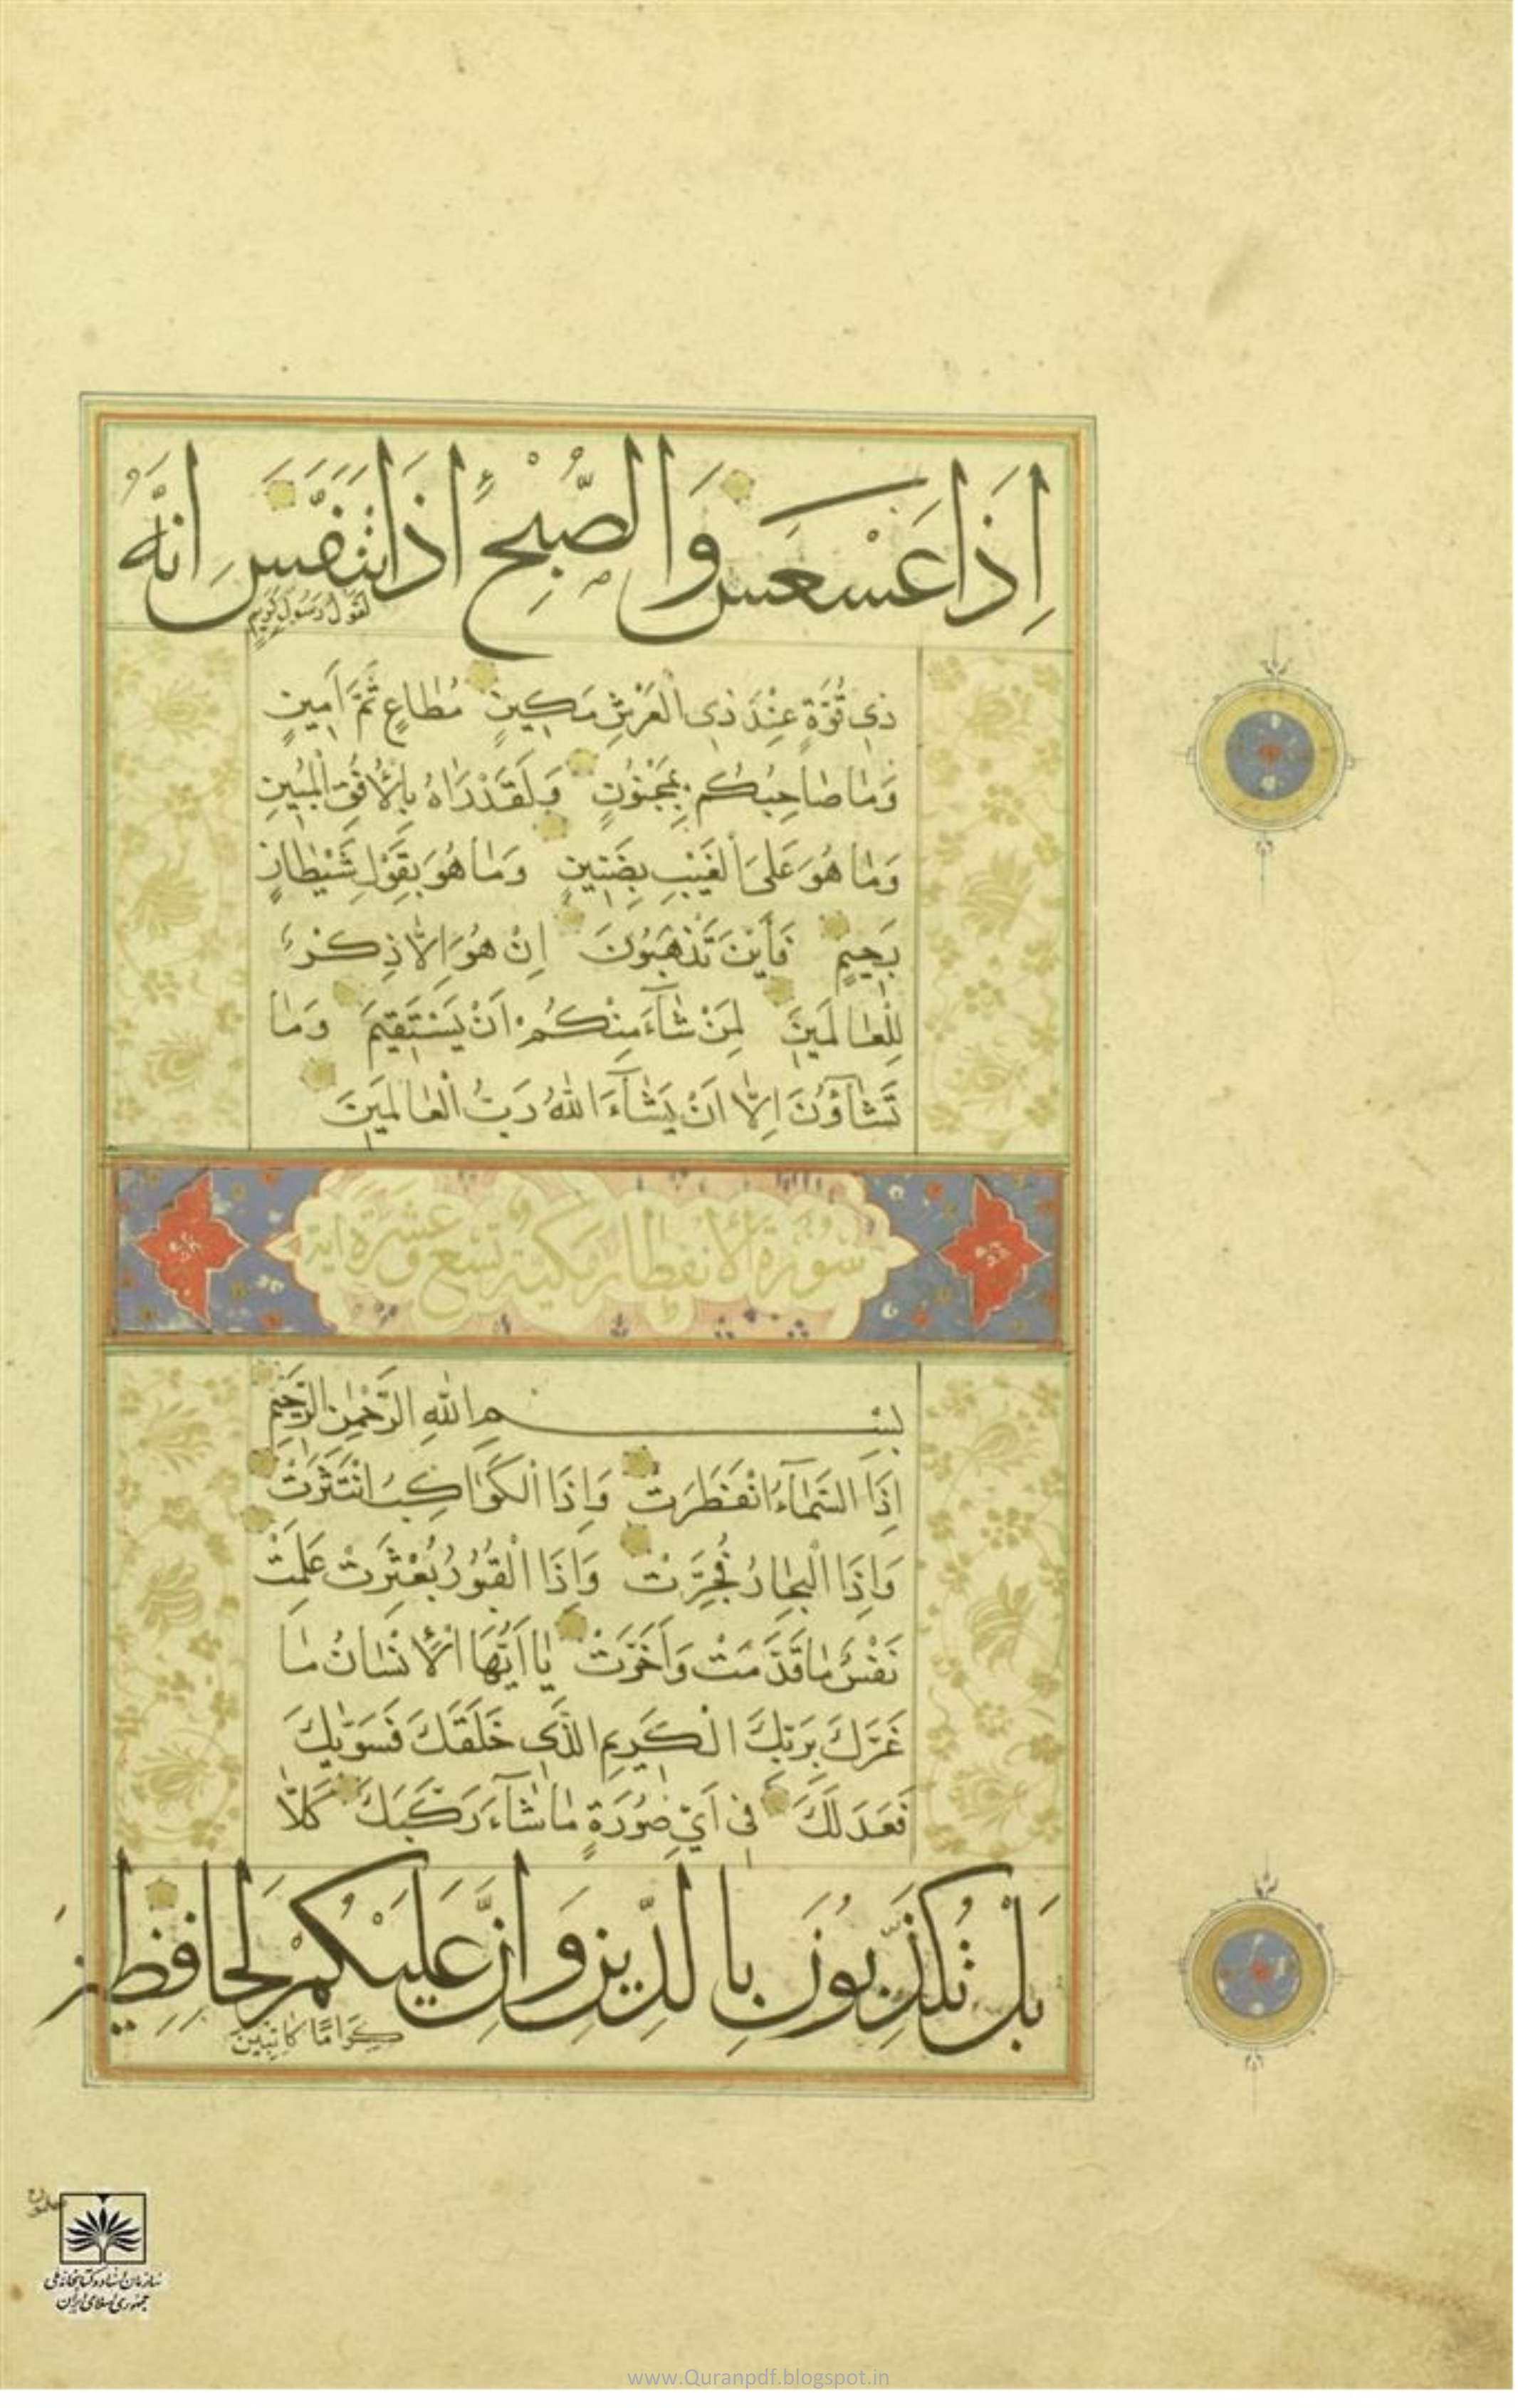 اِذَا عَسْعَسَ وَالصُّبْحِ اِذَا تَنَفَّسَ اِنَّهُ
لَقَوْلُ رَسُولٍ كَرِيمٍ
ذِي قُوَّةٍ عِنْدَ ذِي الْعَرْشِ مَكِينٍ مُطَاعٍ ثَمَّ اَمِينٍ
وَمَا صَاحِبُكُمْ بِمَجْنُونٍ وَلَقَدْ رَاٰهُ بِالْاُفُقِ الْمُبِينِ
وَمَا هُوَ عَلَى الْغَيْبِ بِضَنِينٍ وَمَا هُوَ بِقَوْلِ شَيْطَانٍ
رَجِيمٍ فَأَيْنَ تَذْهَبُونَ اِنْ هُوَ اِلَّا ذِكْرٌ
لِلْعَالَمِينَ لِمَنْ شَآءَ مِنْكُمْ اَنْ يَسْتَقِيمَ وَمَا
تَشَآؤُنَ اِلَّا اَنْ يَشَآءَ اللهُ رَبُّ الْعَالَمِينَ
سُورَةُ الْاِنْفِطَارِ مَكِّيَّة تِسْعَ وَ عَشَرَة اٰيَة
بِسْمِ اللهِ الرَّحْمٰنِ الرَّحِيمِ
اِذَا السَّمَآءُ انْفَطَرَتْ وَاِذَا الْكَوَاكِبُ انْتَثَرَتْ
وَاِذَا الْبِحَارُ فُجِّرَتْ وَاِذَا الْقُبُورُ بُعْثِرَتْ عَلِمَتْ
نَفْسٌ مَا قَدَّمَتْ وَاَخَّرَتْ يَا اَيُّهَا الْاِنْسَانُ مَا
غَرَّكَ بِرَبِّكَ الْكَرِيمِ الَّذِي خَلَقَكَ فَسَوّٰيكَ
فَعَدَلَكَ فِي اَيِّ صُورَةٍ مَا شَآءَ رَكَّبَكَ كَلَّا
بَلْ تُكَذِّبُونَ بِالدِّينِ وَاِنَّ عَلَيْكُمْ لَحَافِظِينَ
كِرَامًا كَاتِبِينَ
سازمان اسناد و کتابخانه ملی
جمهوری اسلامی ایران
www.Quranpdf.blogspot.in